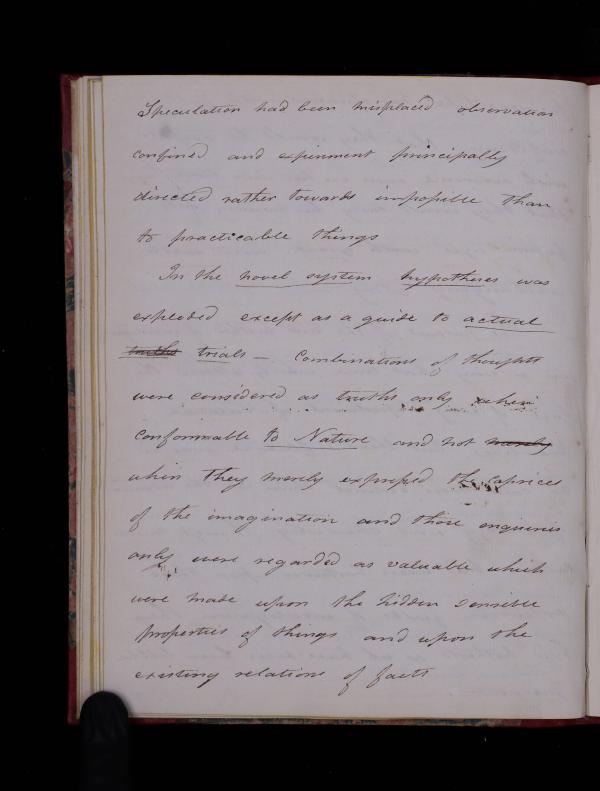 Speculation had been misplaced observation
confined and experiment principally
directed rather towards impossible than
to practicable things
In the novel system hypotheses was
exploded except as a guide to actual
truths trials – Combinations of thoughts
were considered as truths only when
conformable to Nature and not merely
when they merely expressed the caprices
of the imagination and those enquiries
only were regarded as valuable which
were made upon the hidden sensible
properties of things and upon the
existing relations of facts